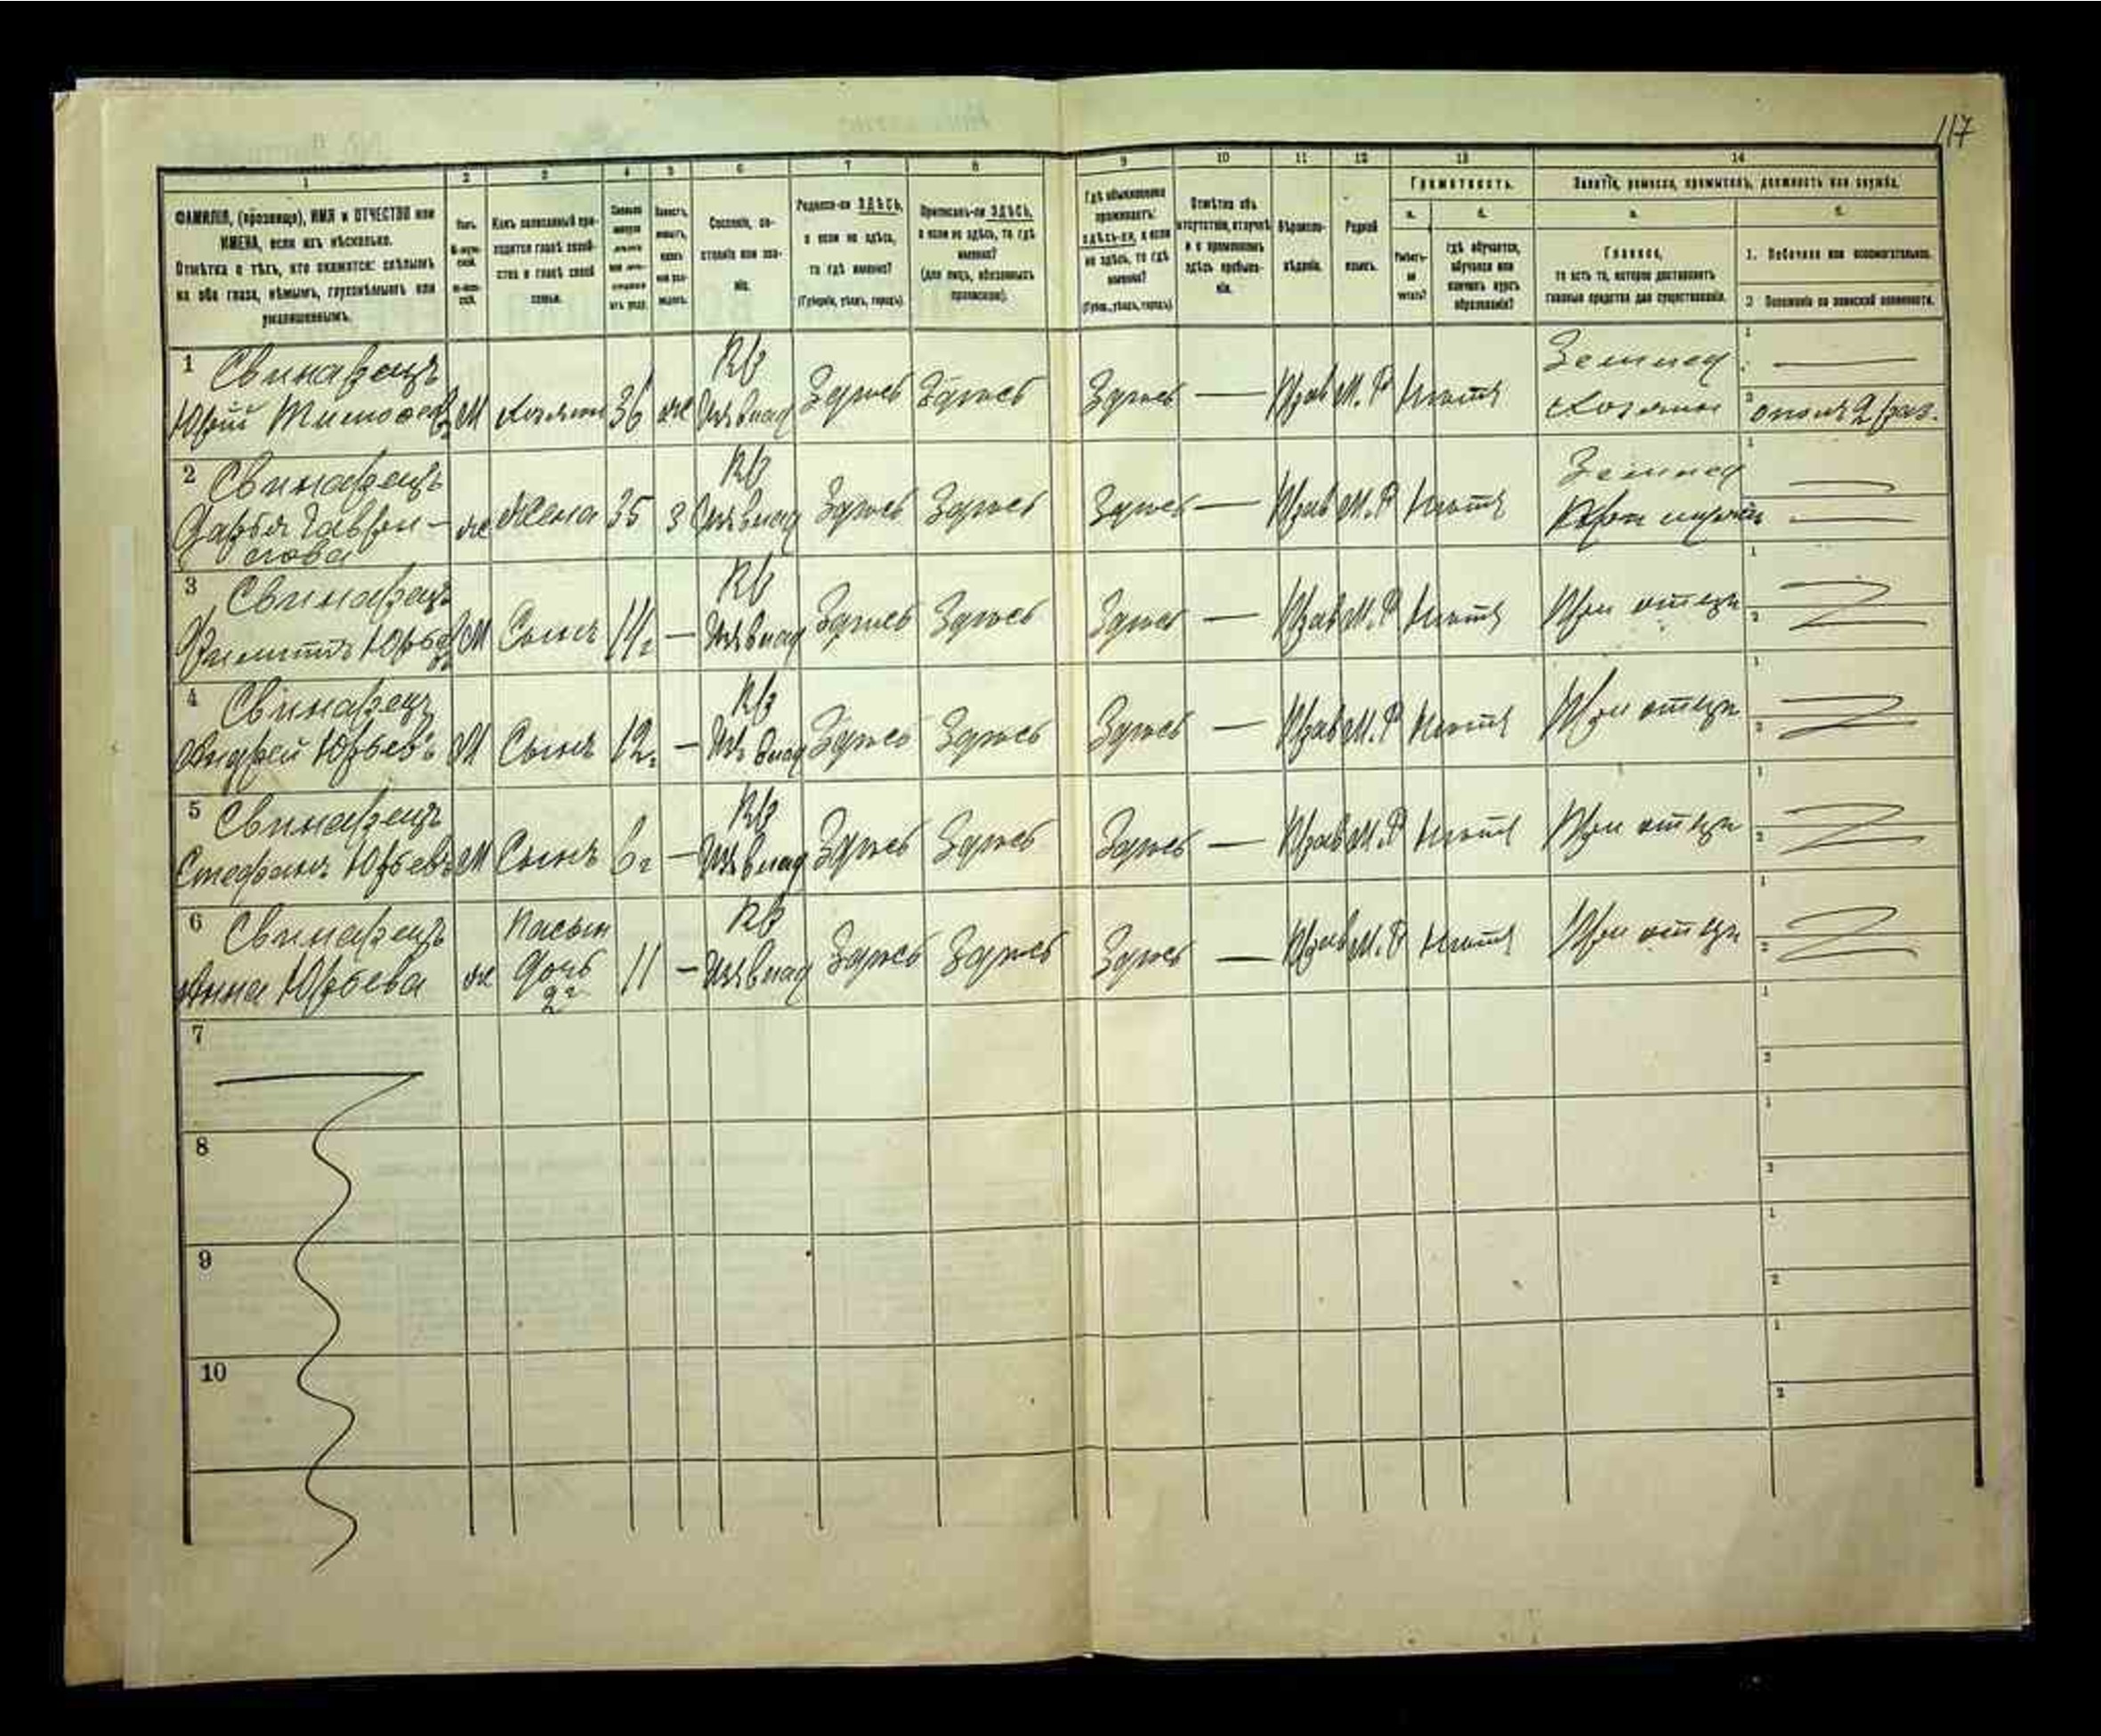 117
1 2 3 4 5 6 7 8 9 10 11 12 13 14
ФАМИЛІЯ, (прозвище), ИМЯ и ОТЧЕСТВО или
ИМЕНА, если ихъ нѣсколько.
Отмѣтка о тѣхъ, кто окажется: слѣпымъ
на оба глаза, нѣмымъ, глухонѣмымъ или
умалишеннымъ.
Полъ.
Какъ записанный при-
ходится главѣ хозяй-
ства и главѣ своей
семьи.
Сословіе, со-
стояніе или зва-
ніе.
Родился-ли ЗДѢСЬ,
а если не здѣсь,
то гдѣ именно?
(Губернія, уѣздъ, городъ).
Приписанъ-ли ЗДѢСЬ,
а если не здѣсь, то гдѣ
именно?
(для лицъ, обязанныхъ
припискою).
Гдѣ обыкновенно
проживаетъ:
здѣсь-ли, а если
не здѣсь, то гдѣ
именно?
(Губ., уѣздъ, городъ).
Отмѣтка объ
отсутствіи, отлучкѣ
и о временномъ
здѣсь пребыва-
ніи.
Вѣроиспо-
вѣданіе.
Родной
языкъ.
Грамотность.
а. б.
Умѣетъ-
ли
читать?
гдѣ обучается,
обучался или
кончилъ курсъ
образованія?
Занятіе, ремесло, промыселъ, должность или служба.
а. б.
Главное,
то есть то, которое доставляетъ
главныя средства для существованія.
1. Побочное или вспомогательное.
2 Положеніе по воинской повинности.
1 Свинарецъ
Юрій Тимофеевъ М Хозяинъ 36 же Кр Изъ влад Здѣсь Здѣсь Здѣсь — Прав М.Р Нѣтъ Землед Хозяинъ 1 — 2 ополч 2 раз.
2 Свинарецъ
Дарья Гаври-
лова же Жена 35 3 Кр Изъ влад Здѣсь Здѣсь Здѣсь — Прав М.Р Нѣтъ Землед При мужѣ 1 — 2 —
3 Свинарецъ
Юрьевъ М Сынъ 14 г — Кр Изъ влад Здѣсь Здѣсь Здѣсь — Прав М.Р Нѣтъ При отцѣ 1 2
4 Свинарецъ
Андрей Юрьевъ М Сынъ 12 г — Кр Изъ влад Здѣсь Здѣсь Здѣсь — Прав М.Р Нѣтъ При отцѣ 1 2
5 Свинарецъ
Стефанъ Юрьевъ М Сынъ 6 г — Кр Изъ влад Здѣсь Здѣсь Здѣсь — Прав М.Р Нѣтъ При отцѣ 1 2
6 Свинарецъ
Анна Юрьева же Дочь 11 — Кр Изъ влад Здѣсь Здѣсь Здѣсь — Прав М.Р Нѣтъ При отцѣ 1 2
7 1 2
8 1 2
9 1 2
10 1 2